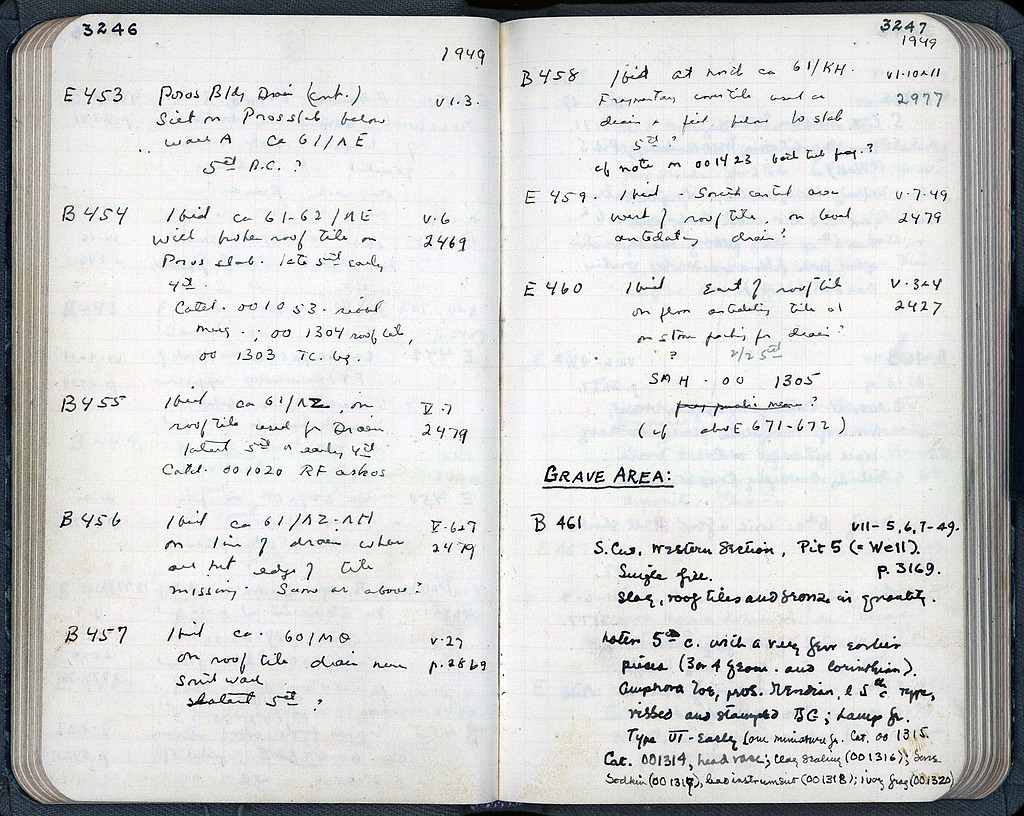 3246
1949
E 453 Poros Bldg Drain (cont.) V.1.3.
Silt on Poros slab below
wall A ca 61/ΛE
5th B.C. ?
B 454 Ibid ca 61-62/ΛE V.6
with broken roof tile on 2469
Poros slab. late 5th early
4th.
Catal. 001053.
; 00 1304 roof tile,
00 1303 TC.
B 455 Ibid ca 61/ΛZ, on V.7
roof tile used for Drain 2479
latest 5th or early 4th
Catal. 001020 RF askos
B 456 Ibid ca 61/ΛZ-ΛH V.6+7
on line of drain where 2479
edge of tile
missing Same as above?
B 457 Ibid ca. 60/ΛΘ V.27
on roof tile drain near p.2869
South wall
latest 5th ?
3247
1949
B 458 Ibid at north ca 61/KH. V1.10+11
Fragmentary cover tile used as 2977
drain
5th ?
cf note on 001423
E 459. Ibid - South central area V.7.49
west of roof tile. on level 2479
antedating drain?
E 460 Ibid East of roof tile V.3+4
on floor antedating tile 2427
on stone packing for drain?
? 2/2 5th
SAH. 00 1305
?
(cf above E 671-672)
GRAVE AREA:
B 461 VII- 5,6,7-49.
S. Cen. Western Section, Pit 5 (= Well). p. 3169.
Single
Slag, roof tiles and bronze in quantity.
Later 5th c. with a very few earlier
pieces (3 or 4 Geom. and Corinthian).
Amphora Toe, prob. Mendian, l. 5th c type,
ribbed and stamped BG; Lamp fr.
Type VI - Early (one miniature fr. Cat. 00 1315.
Cat. 001314, head vase; Clay Sealing (001316);
Bodkin (001317), lead instrument (001318); ivory frag (001320)